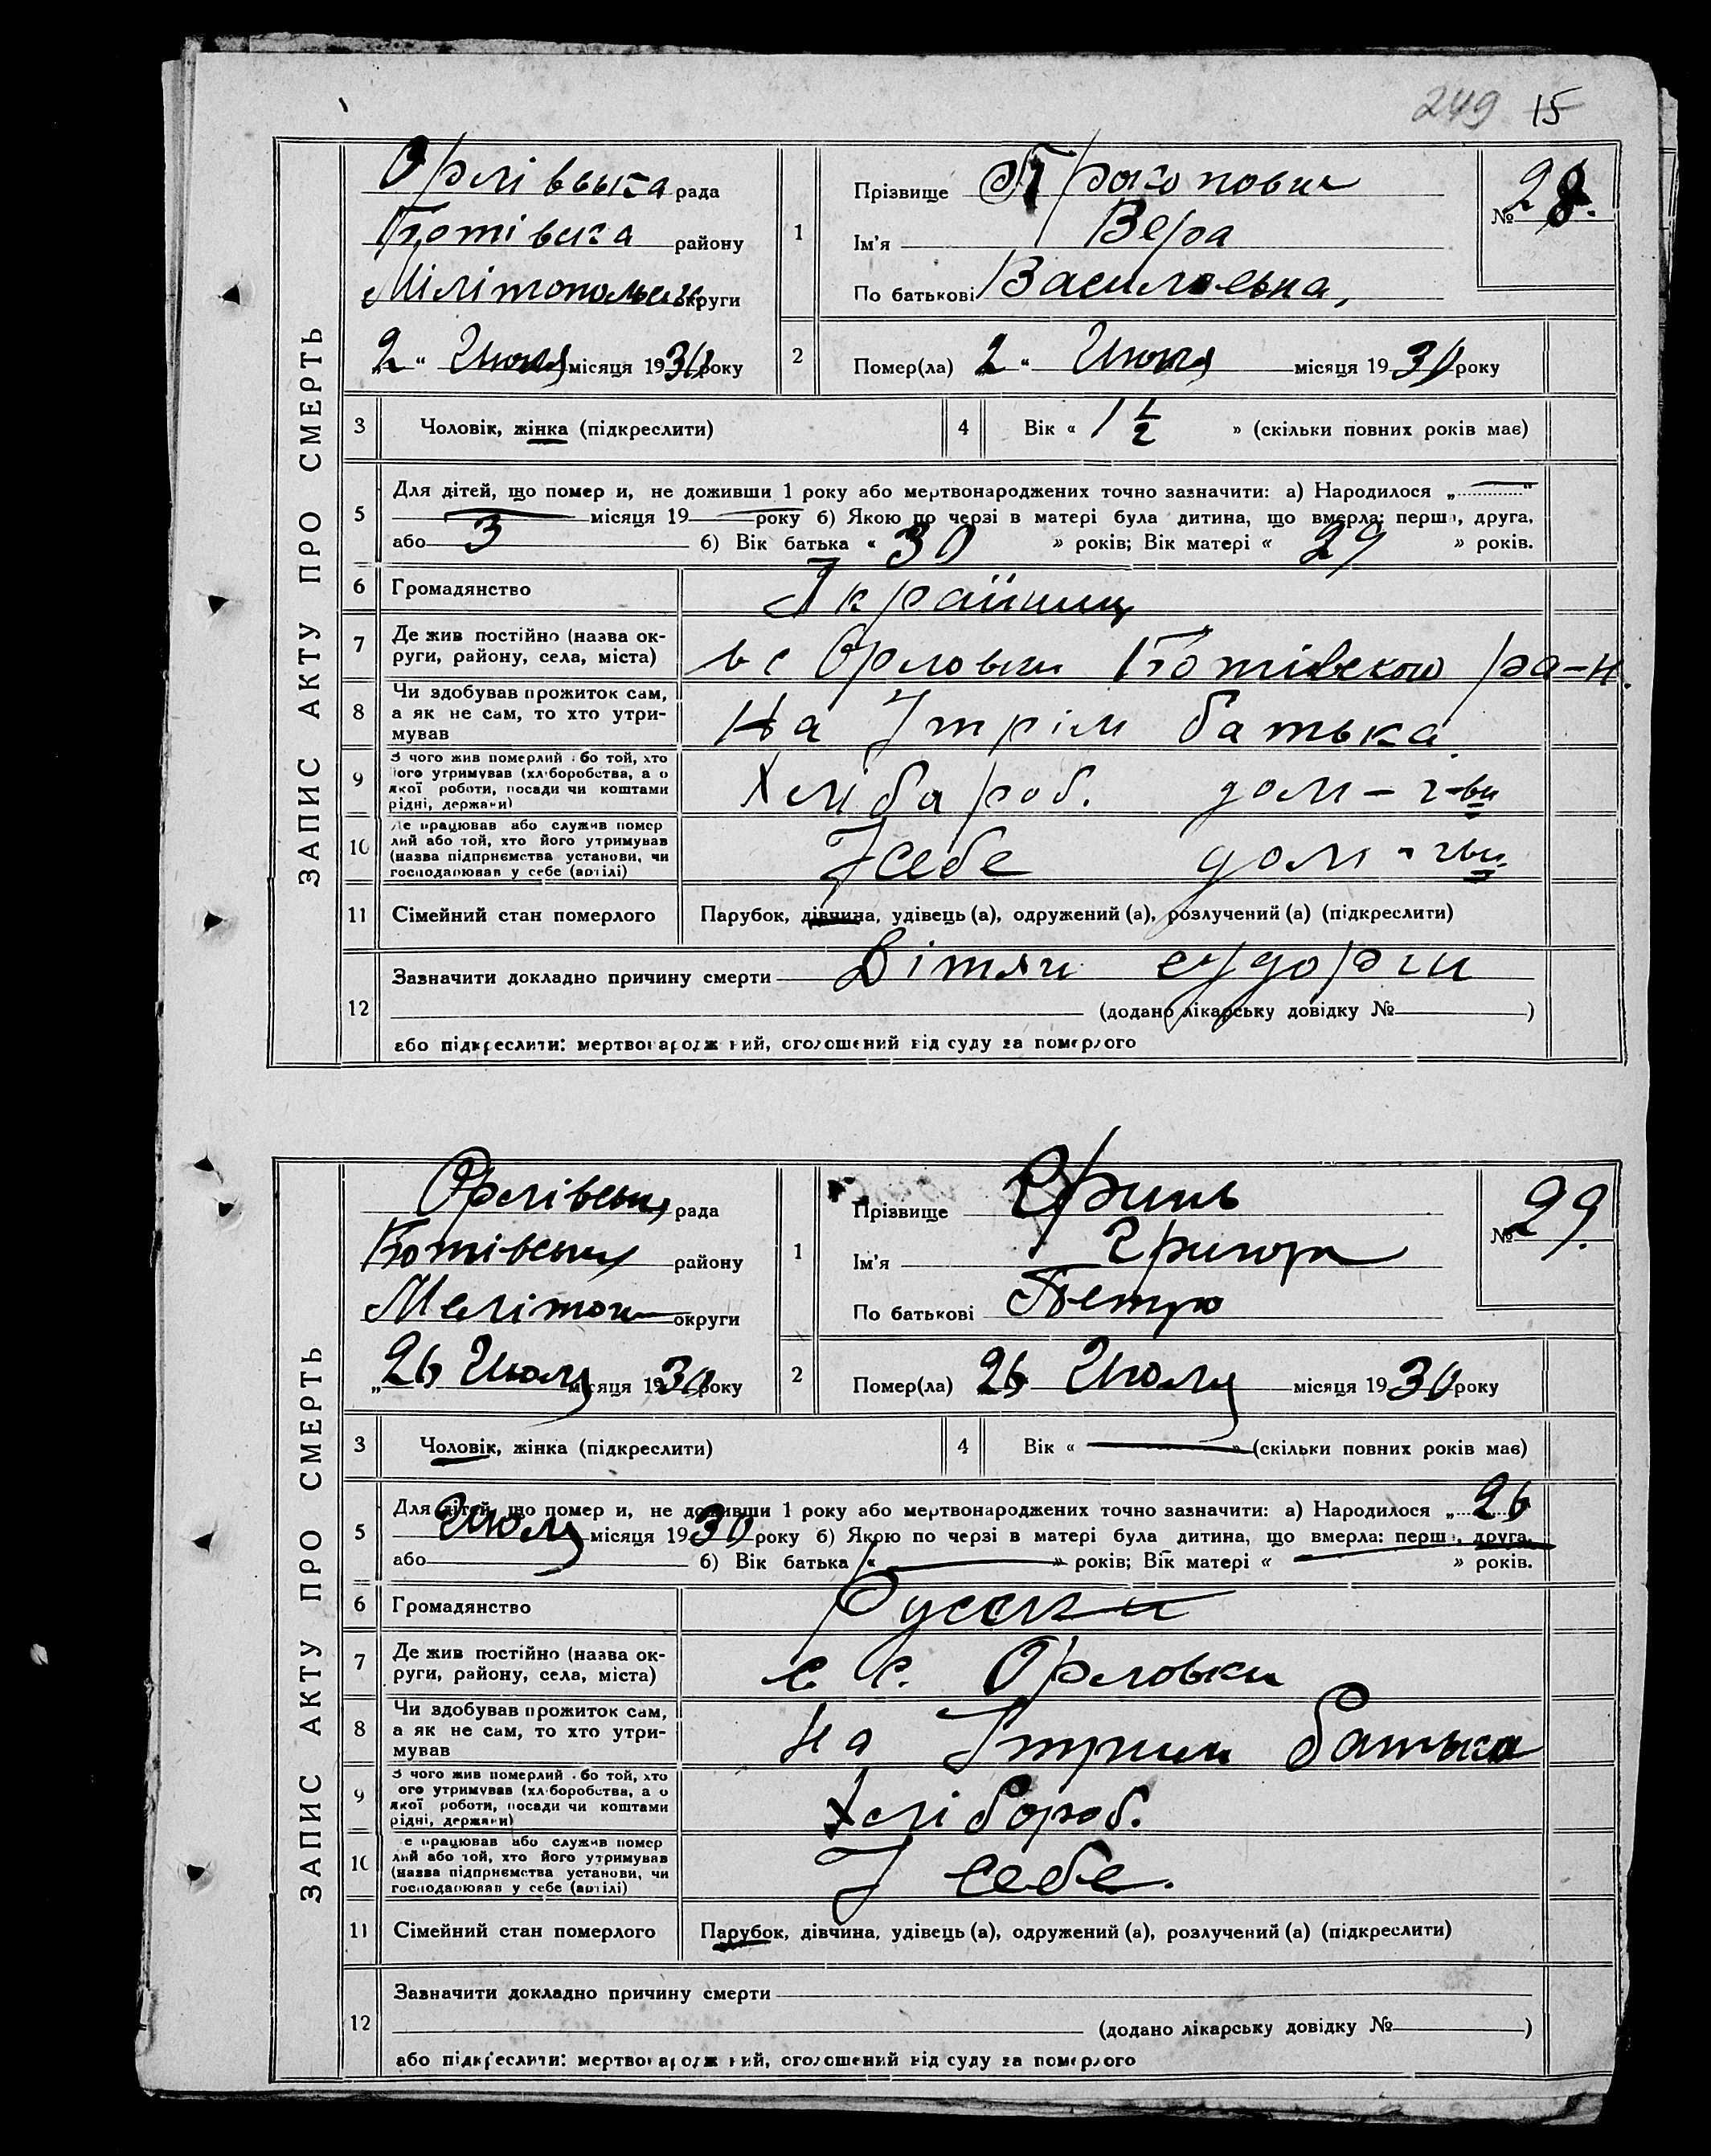 249 15
ЗАПИС АКТУ ПРО СМЕРТЬ
Орлівська рада
Ботівська району
Мілітопольськ округи
2 " Июля місяця 1930 року
1
Прізвище
Ім'я Вера
По батькові Васильевна,
№ 28.
2 Помер(ла) 2 " Июля місяця 1930 року
3 Чоловік, жінка (підкреслити)
4 Вік « 1 1/2 » (скільки повних років має)
5 Для дітей, що помер и, не доживши 1 року або мертвонароджених точно зазначити: а) Народилося „ — "
— місяця 19 — року б) Якою по черзі в матері була дитина, що вмерла: перша, друга,
або 3 б) Вік батька « 30 » років; Вік матері « 29 » років.
6 Громадянство Україниц
7 Де жив постійно (назва ок-
руги, району, села, міста) в с Орловки Ботівского ра-н.
8 Чи здобував прожиток сам,
а як не сам, то хто утри-
мував На Утрім батька
9 З чого жив померлий або той, хто
його утримував (хліборобства, а о
якої роботи, посади чи коштами
рідні, держави) Хлібароб. дом-г-ви
10 Де працював або служив помер
лий або той, хто його утримував
(назва підприємства установи, чи
господарював у себе (артілі) Усебе дом-гви
11 Сімейний стан померлого Парубок, дівчина, удівець (а), одружений (а), розлучений (а) (підкреслити)
12 Зазначити докладно причину смерти Дітячи судорги
(додано лікарську довідку № )
або підкреслити: мертвонароджений, оголошений від суду за померлого
ЗАПИС АКТУ ПРО СМЕРТЬ
Орлівськ рада
Ботівськ району
Мелітоп округи
„26 Июля місяця 1930 року
1
Прізвище Гринь
Ім'я Григорі
По батькові Петро
№ 29.
2 Помер(ла) 26 Июля місяця 1930 року
3 Чоловік, жінка (підкреслити)
4 Вік « — » (скільки повних років має)
5 Для дітей, що помер и, не доживши 1 року або мертвонароджених точно зазначити: а) Народилося „ 26
Июля місяця 1930 року б) Якою по черзі в матері була дитина, що вмерла: перша, друга,
або б) Вік батька « — » років; Вік матері « — » років.
6 Громадянство Русски
7 Де жив постійно (назва ок-
руги, району, села, міста) с. Орловки
8 Чи здобував прожиток сам,
а як не сам, то хто утри-
мував на Утрим батька
9 З чого жив померлий або той, хто
його утримував (хліборобства, а о
якої роботи, посади чи коштами
рідні, держави) Хлібороб.
10 Де працював або служив помер
лий або той, хто його утримував
(назва підприємства установи, чи
господарював у себе (артілі) У себе.
11 Сімейний стан померлого Парубок, дівчина, удівець (а), одружений (а), розлучений (а) (підкреслити)
12 Зазначити докладно причину смерти
(додано лікарську довідку № )
або підкреслити: мертвонароджений, оголошений від суду за померлого